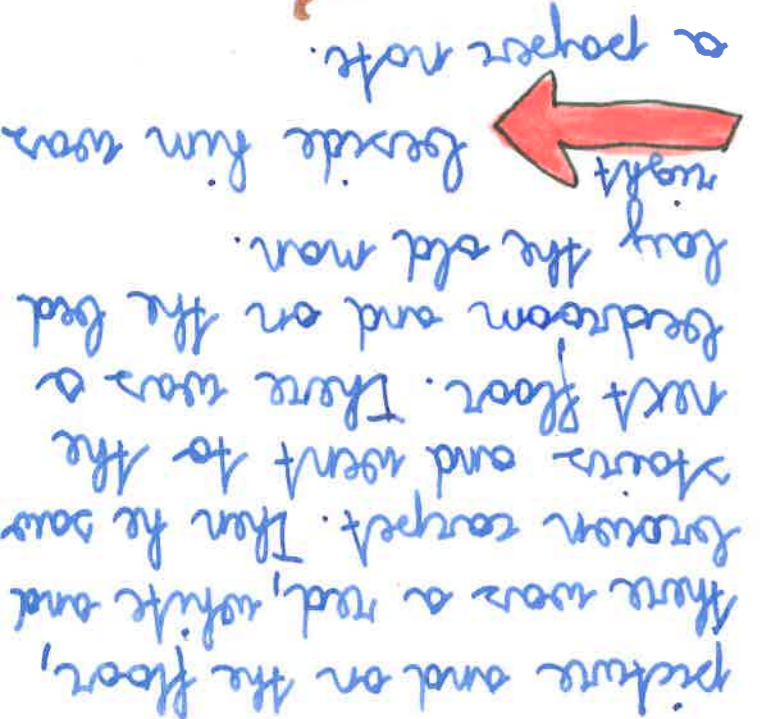 picture and on the floor,
there was a red, white and
brown carpet. Then he saw
stairs and went to the
next floor. There was a
bedroom and on the bed
lay the old man.
right beside him was
a paper note.